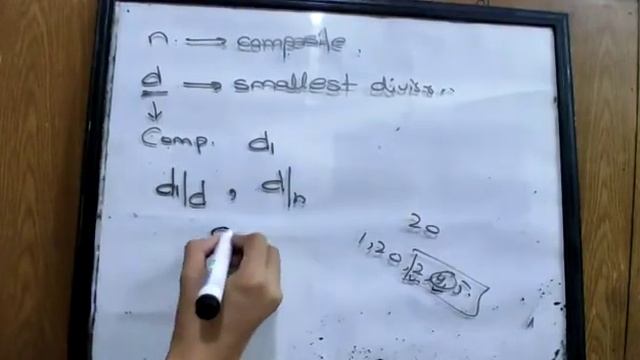 n → composite.
d → smallest divisor.
↓
Comp. d₁
d₁|d , d|n
20
1, 20, 2